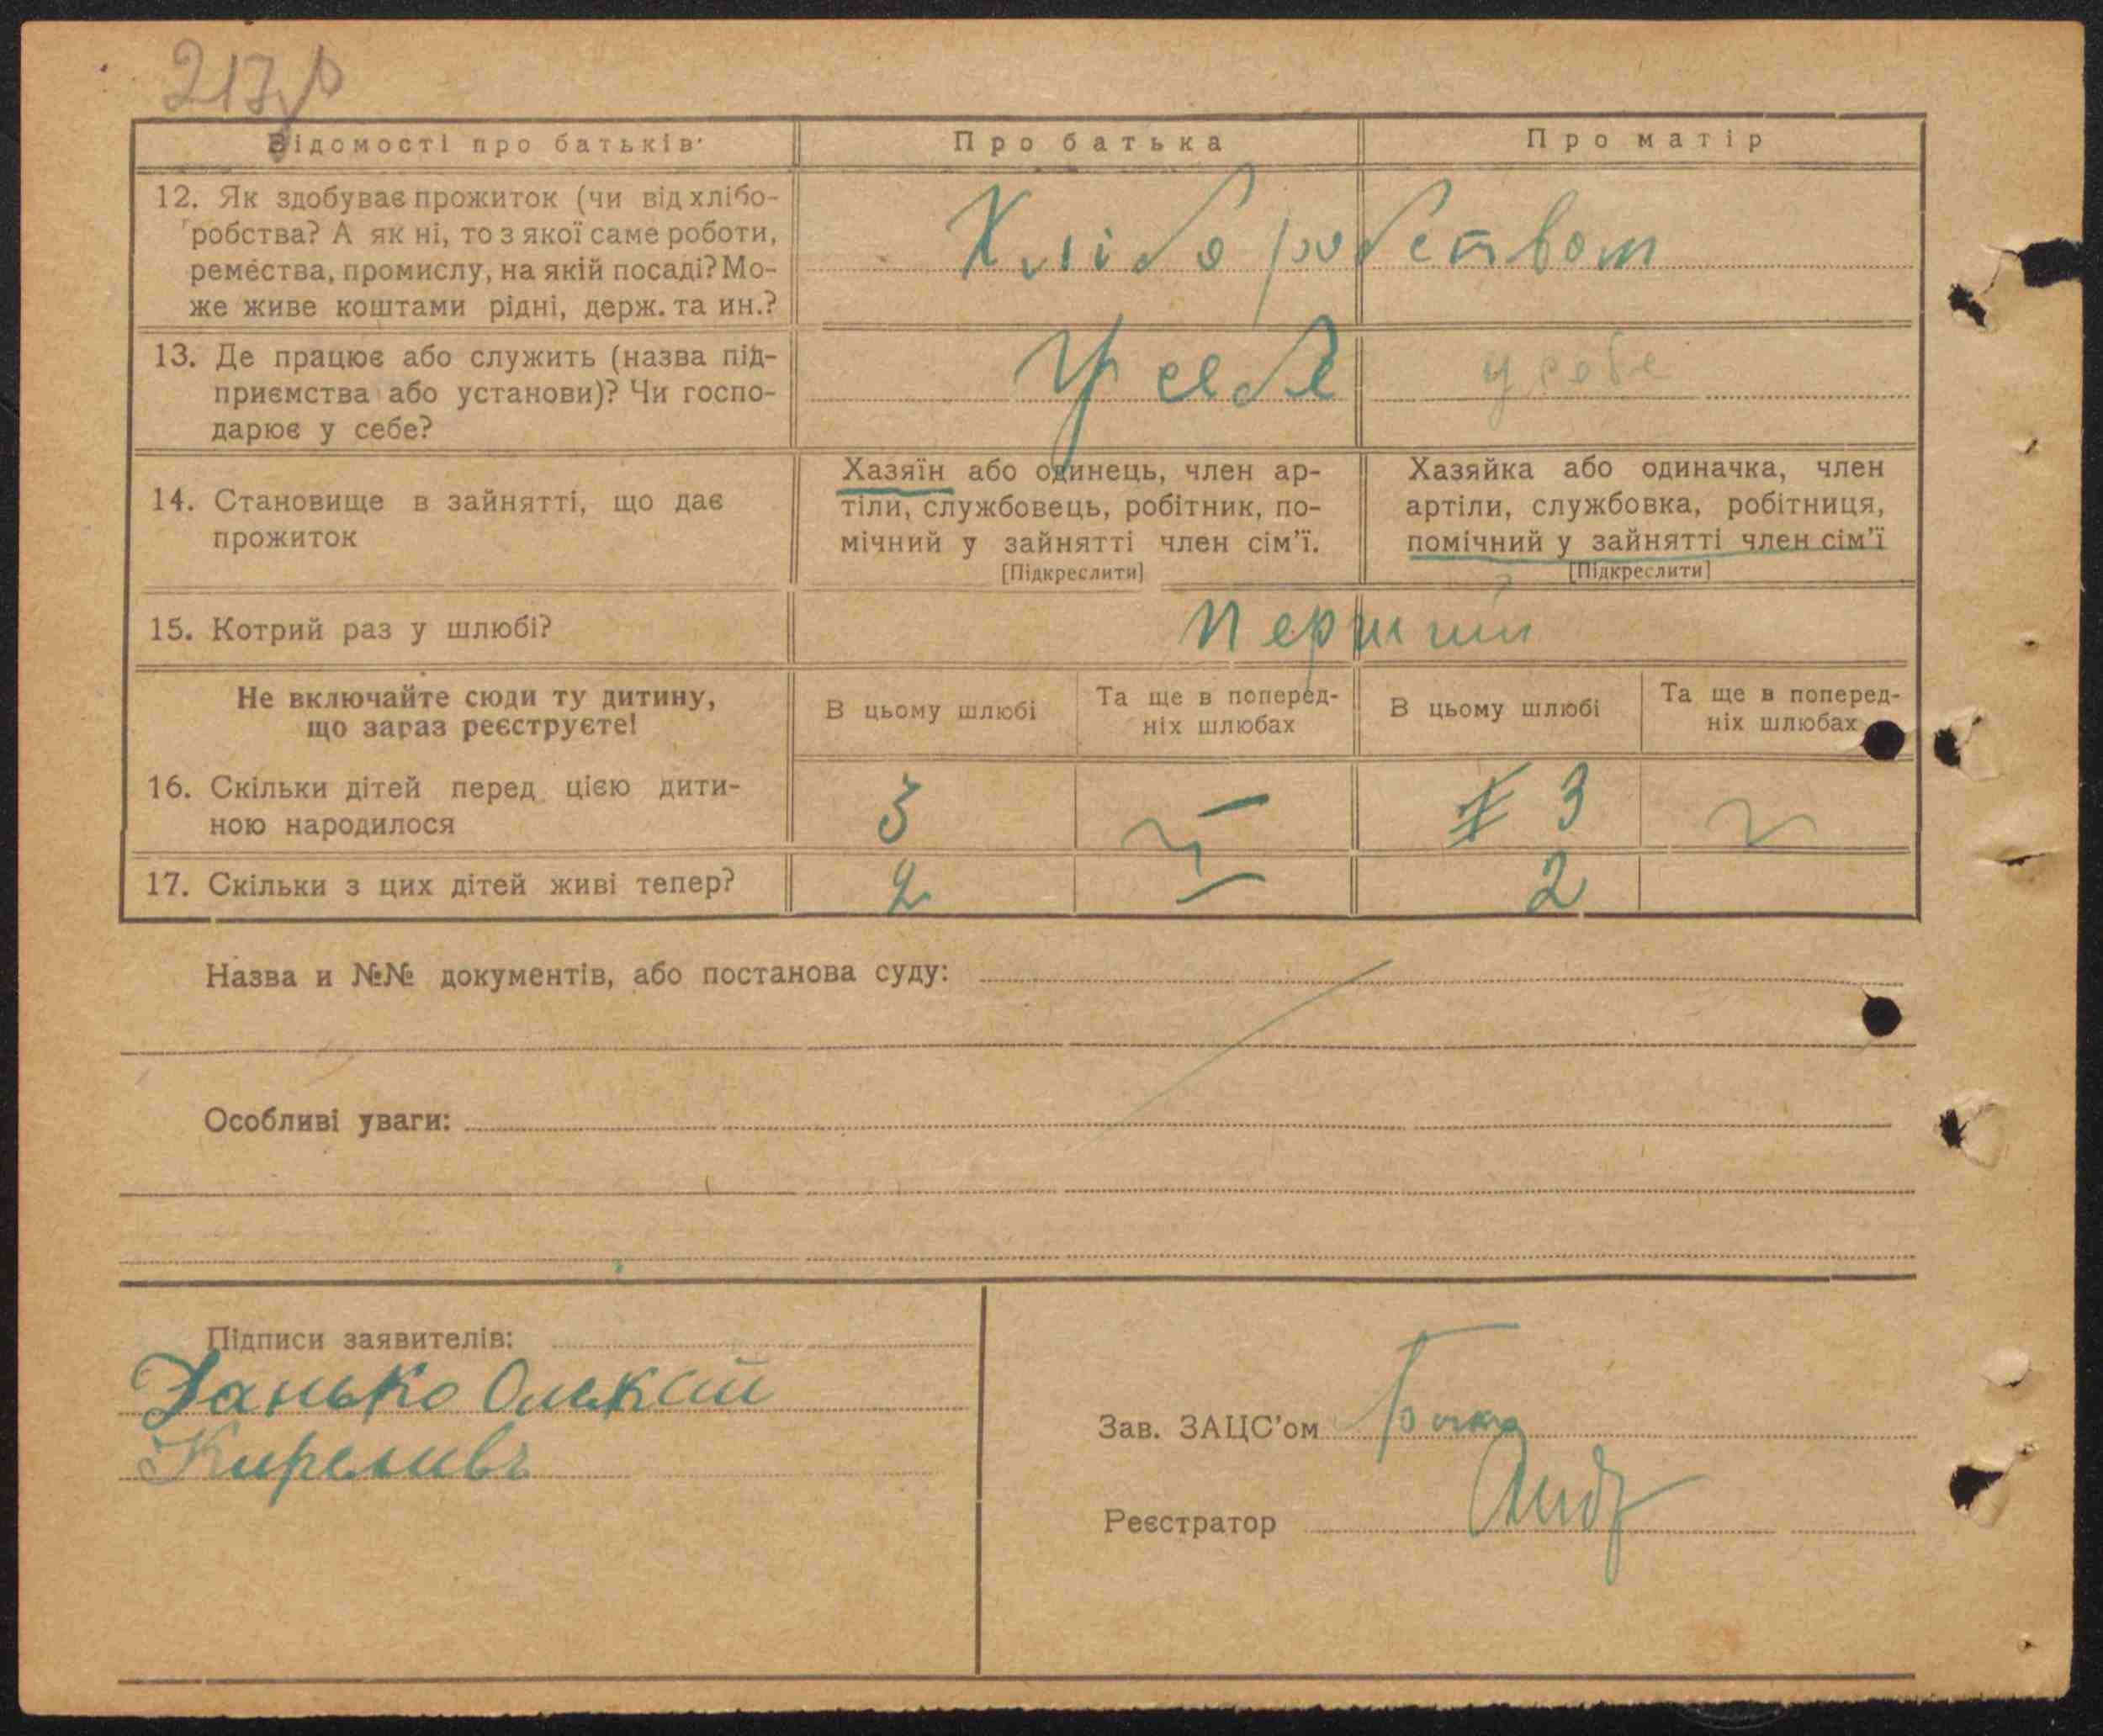 217
Відомості про батьків
Про батька
Про матір
12. Як здобуває прожиток (чи від хлібо-
робства? А як ні, то з якої саме роботи,
ремества, промислу, на якій посаді? Мо-
же живе коштами рідні, держ. та ин.?
Хліборобством
13. Де працює або служить (назва під-
приємства або установи)? Чи госпо-
дарює у себе?
У себе
у себе
14. Становище в зайнятті, що дає
прожиток
Хазяїн або одинець, член ар-
тіли, службовець, робітник, по-
мічний у зайнятті член сім'ї.
[Підкреслити]
Хазяйка або одиначка, член
артіли, службовка, робітниця,
помічний у зайнятті член сім'ї
[Підкреслити]
15. Котрий раз у шлюбі?
перший
Не включайте сюди ту дитину,
що зараз реєструєте!
В цьому шлюбі
Та ще в поперед-
ніх шлюбах
В цьому шлюбі
Та ще в поперед-
ніх шлюбах
16. Скільки дітей перед цією дити-
ною народилося
3 — 3
17. Скільки з цих дітей живі тепер?
2 — 2
Назва и №№ документів, або постанова суду:
Особливі уваги:
Підписи заявителів:
Данько Олексій
Зав. ЗАЦС'ом
Реєстратор